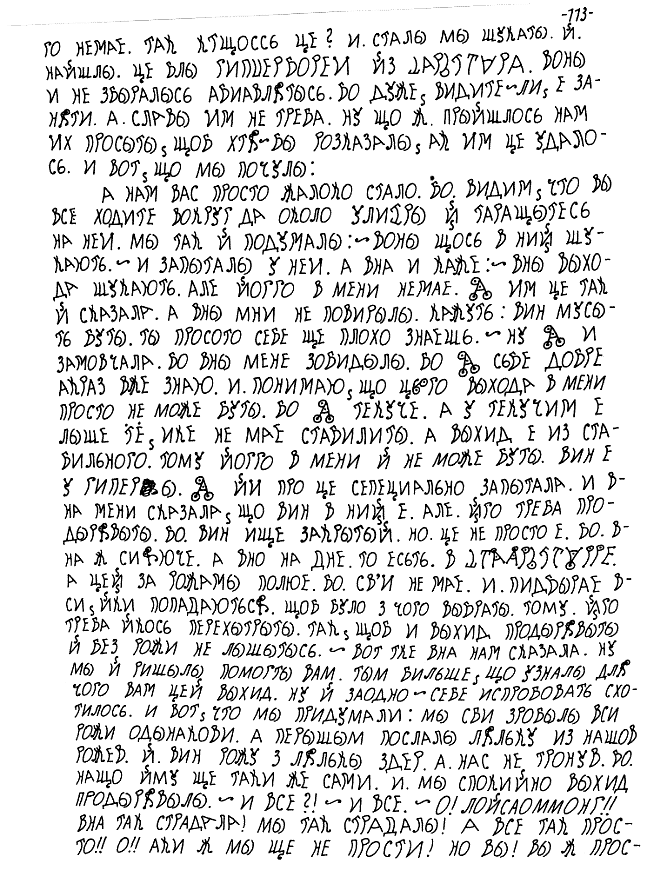 -113-
ТО НЕМАЕ. ТАК КТЩОССЬ ЦЕ? И. СТАЛЫ МЫ ШУКАТЫ. Й.
НАЙШЛЫ. ЦЕ БЛЫ ГИППЕРБОРЕИ ЙЗ. ВОНЫ
И НЕ ЗБЫРАЛЫСЬ АВИАВЛЯТЫСЬ. БО ДУЖЕ, ВИДИТЕ~ЛИ, Е ЗА-
НЯТИ. А. СЛАВЫ ИМ НЕ ТРЕБА. НУ ЩО Ж. ПРЫЙШЛОСЬ НАМ
ИХ ПРОСЫТЫ, ЩОБ ХТЯ~БЫ РОЗКАЗАЛЫ, АК ИМ ЦЕ УДАЛО-
СЬ. И ВОТ, ЩО МЫ ПОЧУЛЫ:
А НАМ ВАС ПРОСТО ЖАЛОКО СТАЛО. БО. ВИДИМ, ЧТО ВЫ
ВСЕ ХОДИТЕ ВОКРУГ ДА ОКОЛО Й ТАРАЩЫТЕСЬ
НА НЕИ. МЫ ТАК Й ПОДУМАЛЫ:~ ВОНЫ ЩОСЬ В НИЙ ШУ-
КАЮТЬ.~ И ЗАПЫТАЛЫ У НЕИ. А ВНА И КАЖЕ:~ ВНЫ ВЫХО-
ДА ШУКАЮТЬ. АЛЕ ЙОГГО В МЕНИ НЕМАЕ. ИМ ЦЕ ТАК
Й СКАЗАЛА. А ВНЫ МНИ НЕ ПОВИРЫЛЫ. КАЖУТЬ: ВИН МУСЫ-
ТЬ БУТЫ. ТЫ ПРОСОТО СЕБЕ ЩЕ ПЛОХО ЗНАЕШЬ.~ НУ И
ЗАМОВЧАЛА. БО ВНЫ МЕНЕ ЗОБИДЫЛЫ. БО СЕБЕ ДОБРЕ
АКРАЗ ВЖЕ ЗНАЮ. И. ПОНИМАЮ, ЩО ЦЬОГО ВЫХОДА В МЕНИ
ПРОСТО НЕ МОЖЕ БУТЫ. БО ТЕКУЧЕ. А У ТЕКУЧИМ Е
ЛЫШЕ ТЕ, ИКЕ НЕ МАЕ СТАБИЛИТЫ. А ВЫХИД Е ИЗ СТА-
БИЛЬНОГО. ТОМУ ЙОГГО В МЕНИ Й НЕ МОЖЕ БУТЫ. ВИН Е
У ЙИ ПРО ЦЕ СПЕЦИАЛЬНО ЗАПЫТАЛА. И В-
НА МЕНИ СКАЗАЛА, ЩО ВИН В НИЙ Е. АЛЕ. ЙГО ТРЕБА ПРО-
ДЫРЯВЫТЫ. БО. ВИН ИЩЕ ЗАКРЫТЫЙ. НО. ЦЕ НЕ ПРОСТО Е. БО. В-
НА Ж СИЯЮЧЕ. А ВНО НА ДНЕ. ТО ЕСЬТЬ. В
А ЦЕЙ ЗА РОЖАМЫ ПОЛЮЕ. БО. СВ'И НЕ МАЕ. И. ПИДБЫРАЕ В-
СИ, ЙКИ ПОПАДАЮТЬСЯ. ЩОБ БУЛО З ЧОГО ВЫБРАТЫ. ТОМУ. ЙГО
ТРЕБА ЙКОСЬ ПЕРЕХЫТРЫТЫ. ТАК, ЩОБ И ВЫХИД ПРОДЫРЯВЫТЫ
Й БЕЗ РОЖИ НЕ ЛЫШЫТЫСЬ.~ ВОТ ТКЕ ВНА НАМ СКАЗАЛА. НУ
МЫ Й РИШЫЛЫ ПОМОГТЫ ВАМ. ТЫМ БИЛЬШЕ, ЩО УЗНАЛЫ ДЛЯ
ЧОГО ВАМ ЦЕЙ ВЫХИД. НУ Й ЗАОДНО~ СЕБЕ ИСПРОБОВАТЬ СХО-
ТИЛОСЬ. И ВОТ, ЧТО МЫ ПРИДУМАЛИ: МЫ СВИ ЗРОБЫЛЫ ВСИ
РОЖИ ОДЫНАКОВИ. А ПЕРЫШЫМ ПОСЛАЛЫ ЛЯЛЬКУ ИЗ НАШОВ
РОЖЕВ. Й. ВИН РОЖУ З ЛЯЛЬКЫ ЗДЕР. А. НАС НЕ ТРОНУВ. БО.
НАЩО ЙМУ ЩЕ ТАКИ ЖЕ САМИ. И. МЫ СПОКИЙНО ВЫХИД
ПРОДЫРЯВЫЛЫ.~ И ВСЕ?!~ И ВСЕ.~ О! ЛОЙСАОММОНГ!!
ВНА ТАК СТРАДАЛА! МЫ ТАК СТРАДАЛЫ! А ВСЕ ТАК ПРОС-
ТО!! О!! АКИ Ж МЫ ЩЕ НЕ ПРОСТИ! НО ВЫ! ВЫ Ж ПРОС-